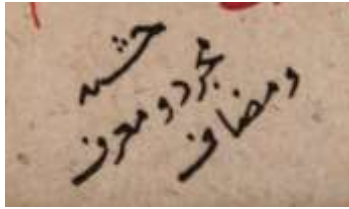 خشیه
مجرد و معرف
و مضاف